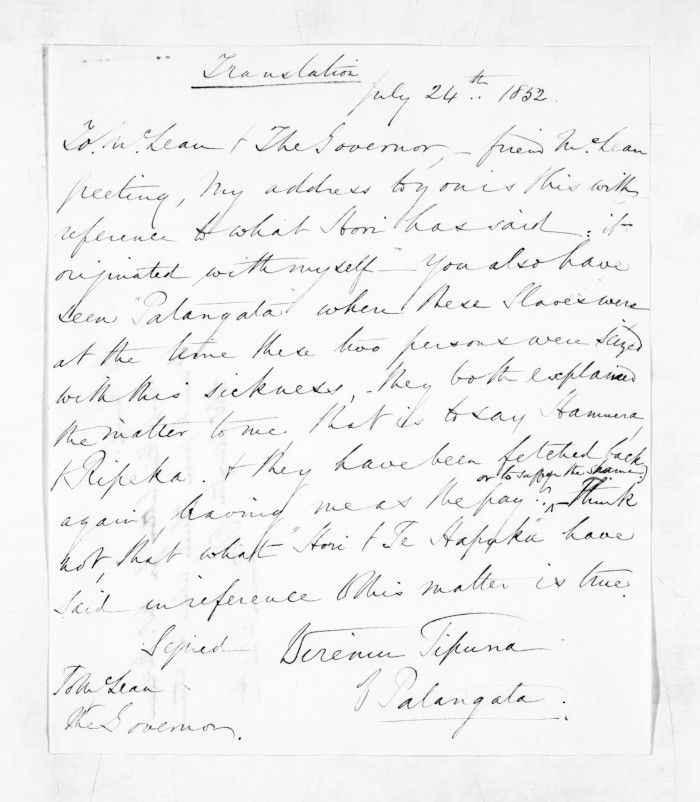 Translation
July 24th. 1852.
To. McLean & The Governor, – friend McLean
greeting, My address to you is this with
reference to what Hori has said; it
originated with myself – You also have
seen "Palangata" where these Slaves were
at the time these two persons were seized
with this sickness, – they both explained
the matter to me, that is to say Hamuera,
& Ripeka. & they have been fetched back
or to suffer the shame?
again, leaving me as the pay. ? ^ Think
not, that what "Hori & Te Hapuku" have
said in reference to this matter is true.
Signed Tipuna
of Palangata.
To McLean
& The Governor.